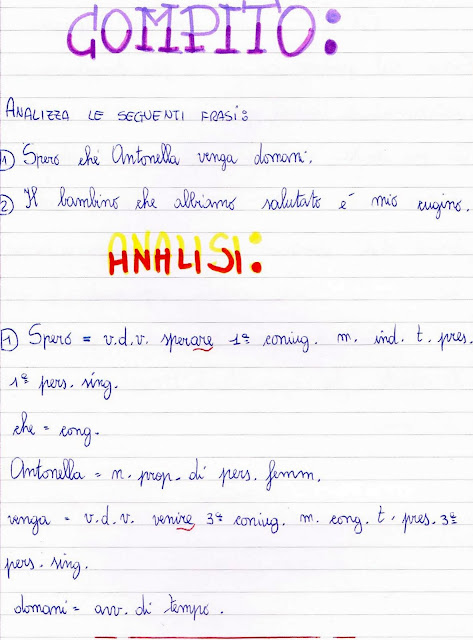 COMPITO:
ANALIZZA LE SEGUENTI FRASI:
1) Spero che Antonella venga domani.
2) Il bambino che abbiamo salutato è mio cugino.
ANALISI:
1) Spero = v.d.v. sperare 1ª coniug. m. ind. t. pres.
1ª pers. sing.
che = cong.
Antonella = n. prop. di pers. femm.
venga = v.d.v. venire 3ª coniug. m. cong. t. pres. 3ª
pers. sing.
domani = avv. di tempo.